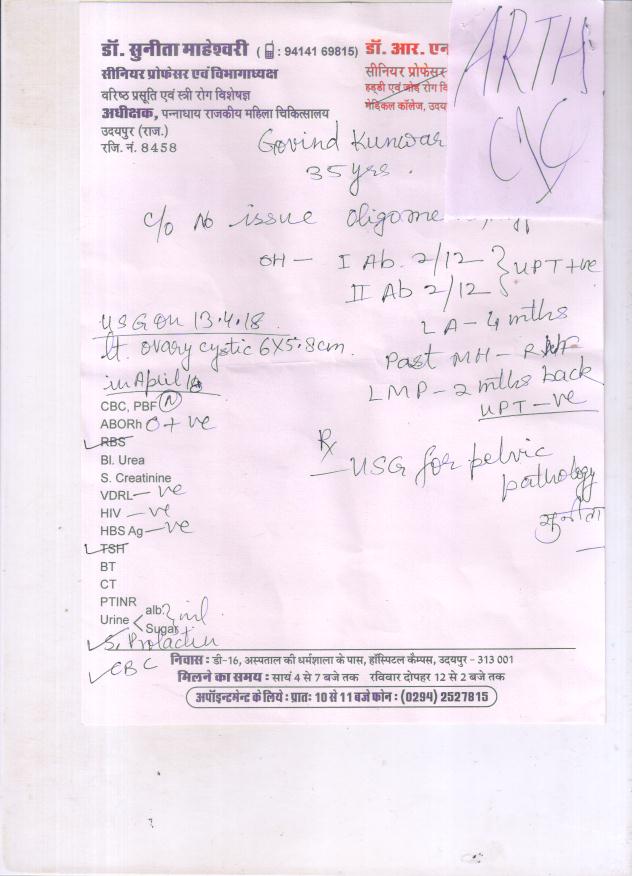 डॉ. सुनीता माहेश्वरी ( : 94141 69815)
सीनियर प्रोफेसर एवं विभागाध्यक्ष
वरिष्ठ प्रसूति एवं स्त्री रोग विशेषज्ञ
अधीक्षक, पन्नाधाय राजकीय महिला चिकित्सालय
उदयपुर (राज.)
रजि. नं. 8458
डॉ. आर. एन
सीनियर प्रोफेसर
हड्डी एवं जोड़ रोग वि
मेडिकल कॉलेज, उदय
ARTH
Govind Kunwar
35 yrs.
c/o No issue
OH - I Ab. 2/12 } UPT +ve
II Ab 2/12
LA - 4 mths
Past MH - R
LMP - 2 mths back
UPT -ve
USG on 13.4.18.
Lt. ovary cystic 6x5.8cm.
in April 18
CBC, PBF (N)
ABORh O +ve
RBS
Bl. Urea
S. Creatinine
VDRL - ve
HIV - ve
HBS Ag - ve
TSH
BT
CT
PTINR
Urine < alb. } nil
Sugar
S. Prolactin
CBC
Rx
- USG for pelvic
pathology
सुनीता
निवास : डी-16, अस्पताल की धर्मशाला के पास, हॉस्पिटल कैम्पस, उदयपुर - 313 001
मिलने का समय : सायं 4 से 7 बजे तक रविवार दोपहर 12 से 2 बजे तक
अपॉइन्टमेन्ट के लिये : प्रातः 10 से 11 बजे फोन : (0294) 2527815